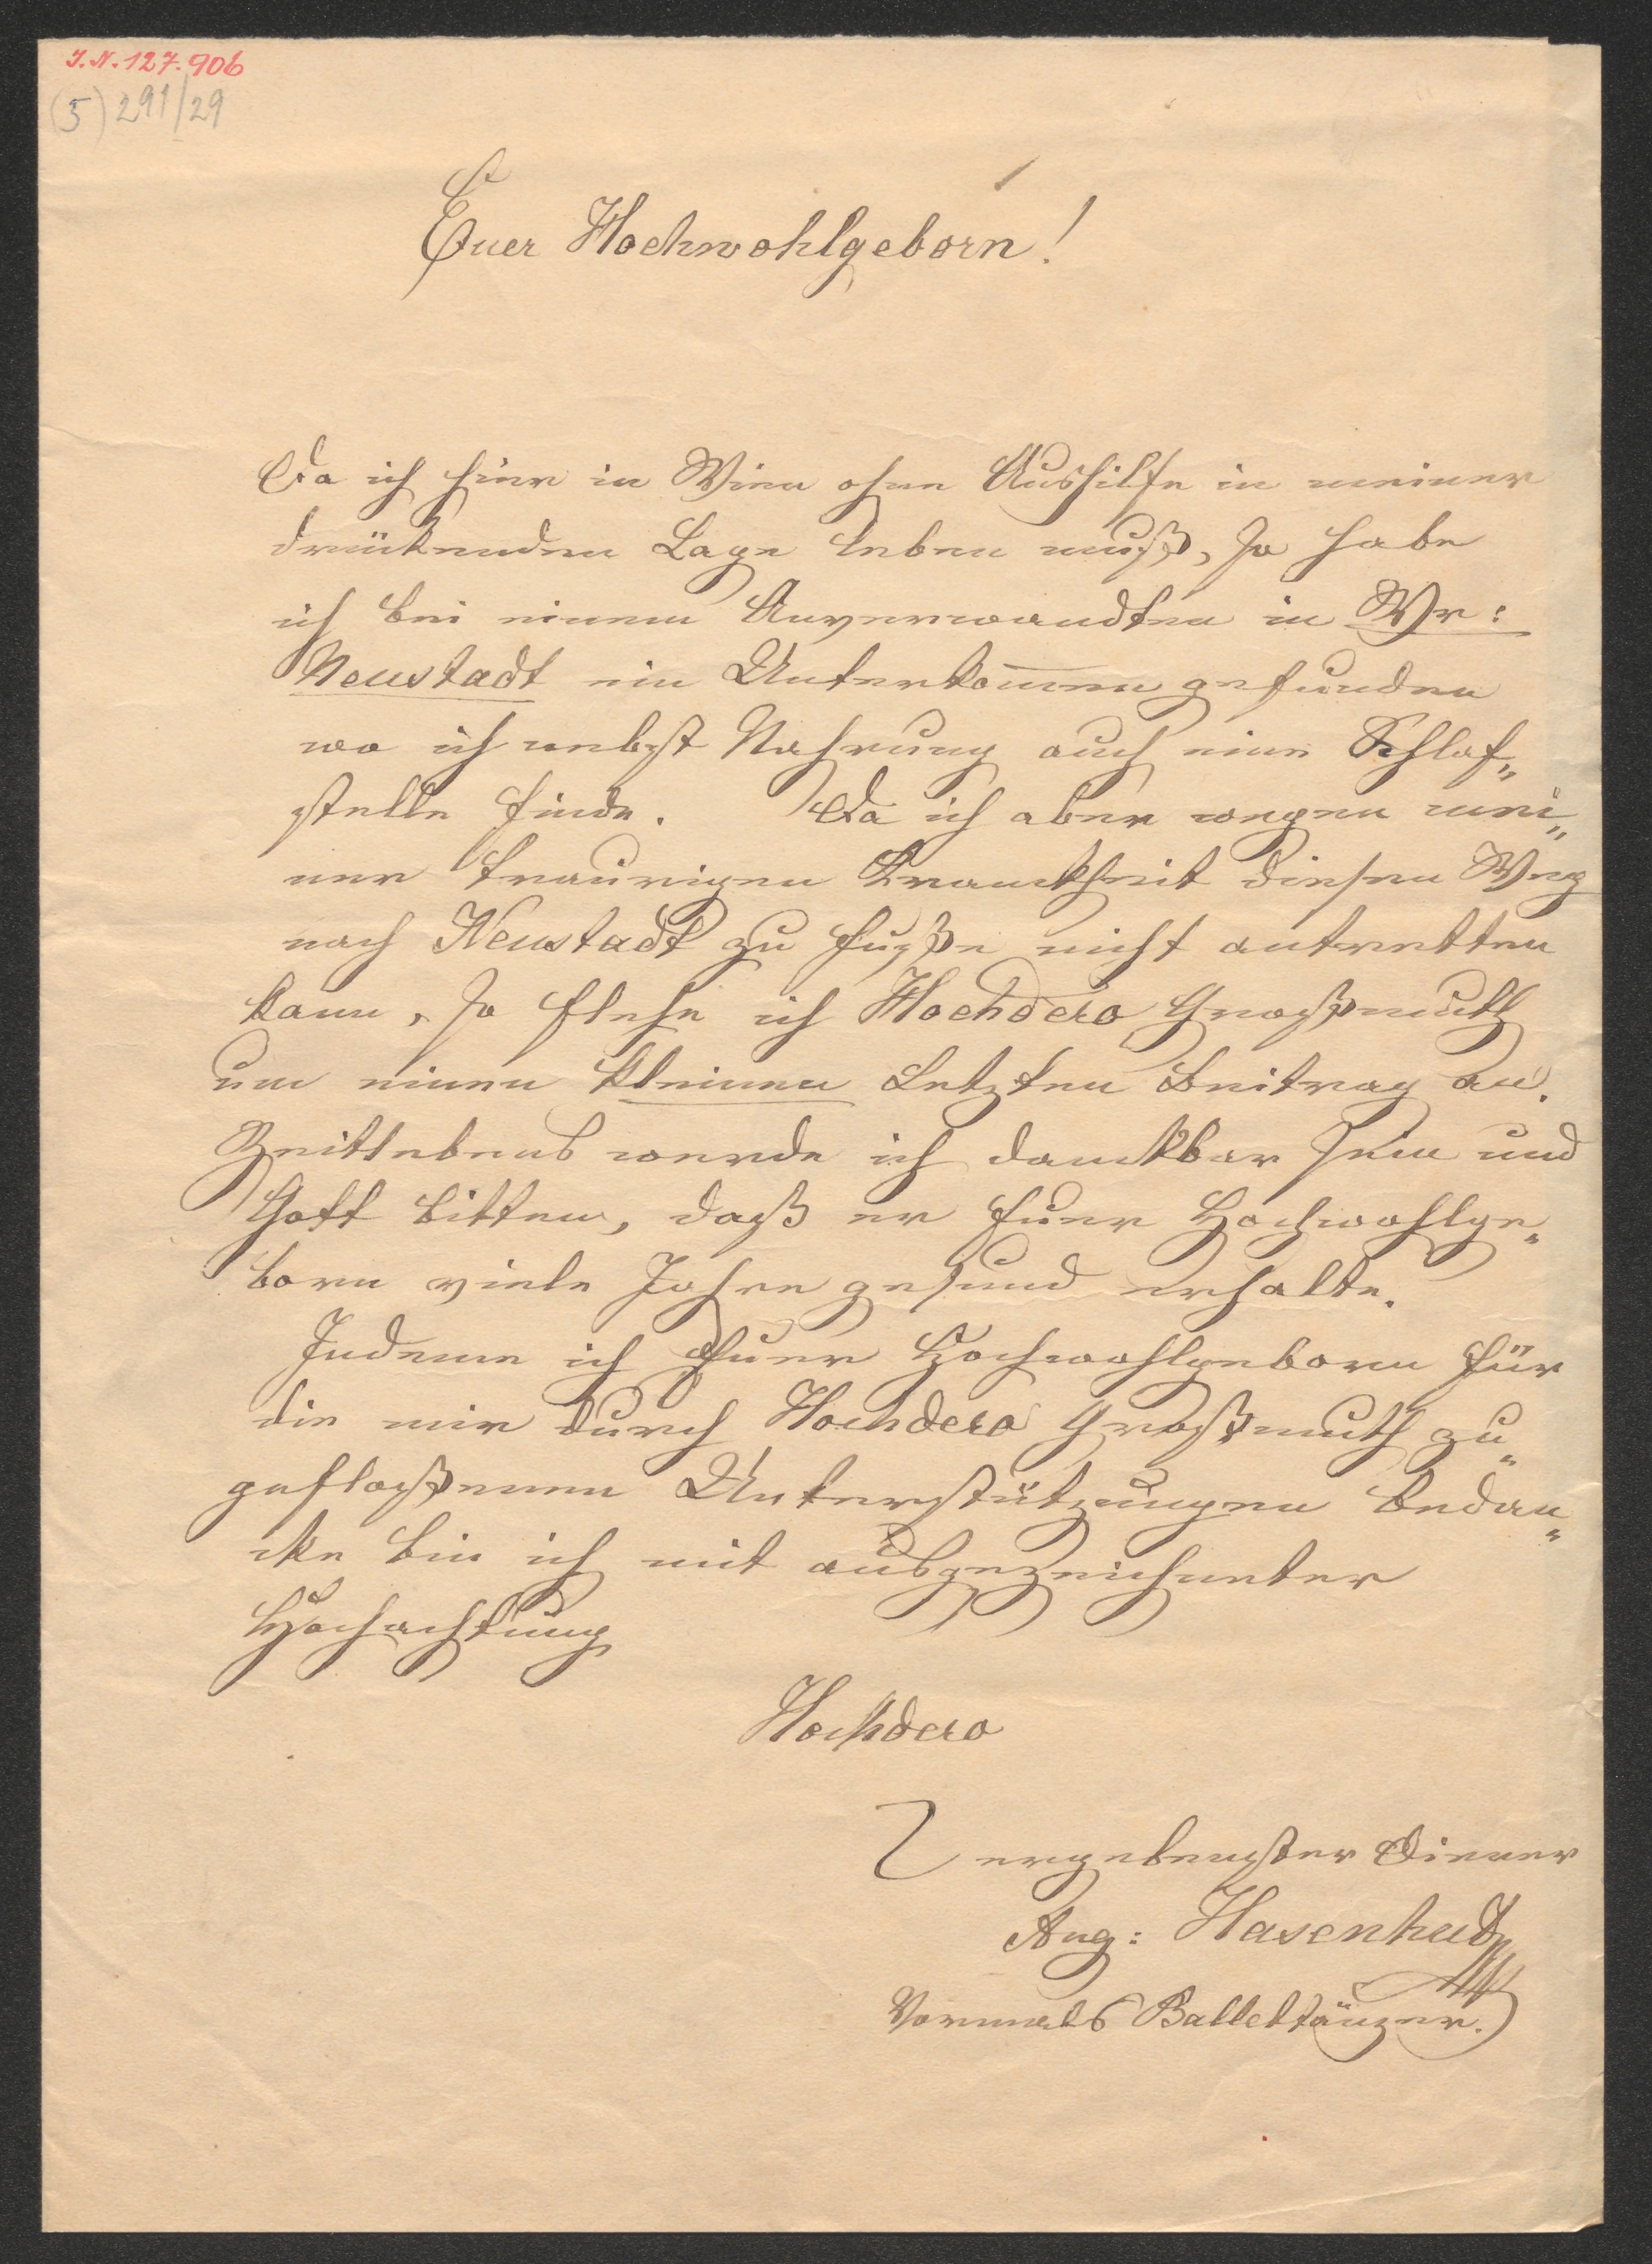 J.N. 127.906
(5) 291/29
Euer Hochwohlgeborn!
Da ich hier in Wien ohne Aushilfe in meiner
drückenden Lage leben muß, so habe
ich bei einem Anverwandten in Wr:
Neustadt ein Unterkom̅en gefunden
wo ich nebst Nahrung auch eine Schlaf„
stelle finde. Da ich aber wegen mei„
ner traurigen Krankheit diesen Weg
nach Neustadt zu Fuße nicht antretten
kann, so flehe ich Hochdero Großmuth
um einen kleinen Letzten Beitrag an.
Zeitlebens werde ich dankbar sein und
Gott bitten, daß er Euer Hochwohlge„
born viele Jahre gesund erhalte.
Indem ich Euer Hochwohlgeborn für
die mir durch Hochdero Großmuth zu„
gefloßenen Unterstützungen bedan„
cke bin ich mit ausgezeichneter
Hochachtung
Hochdero
ergebenster Diener
Aug: Hasenhut
Vormals Ballettänzer.